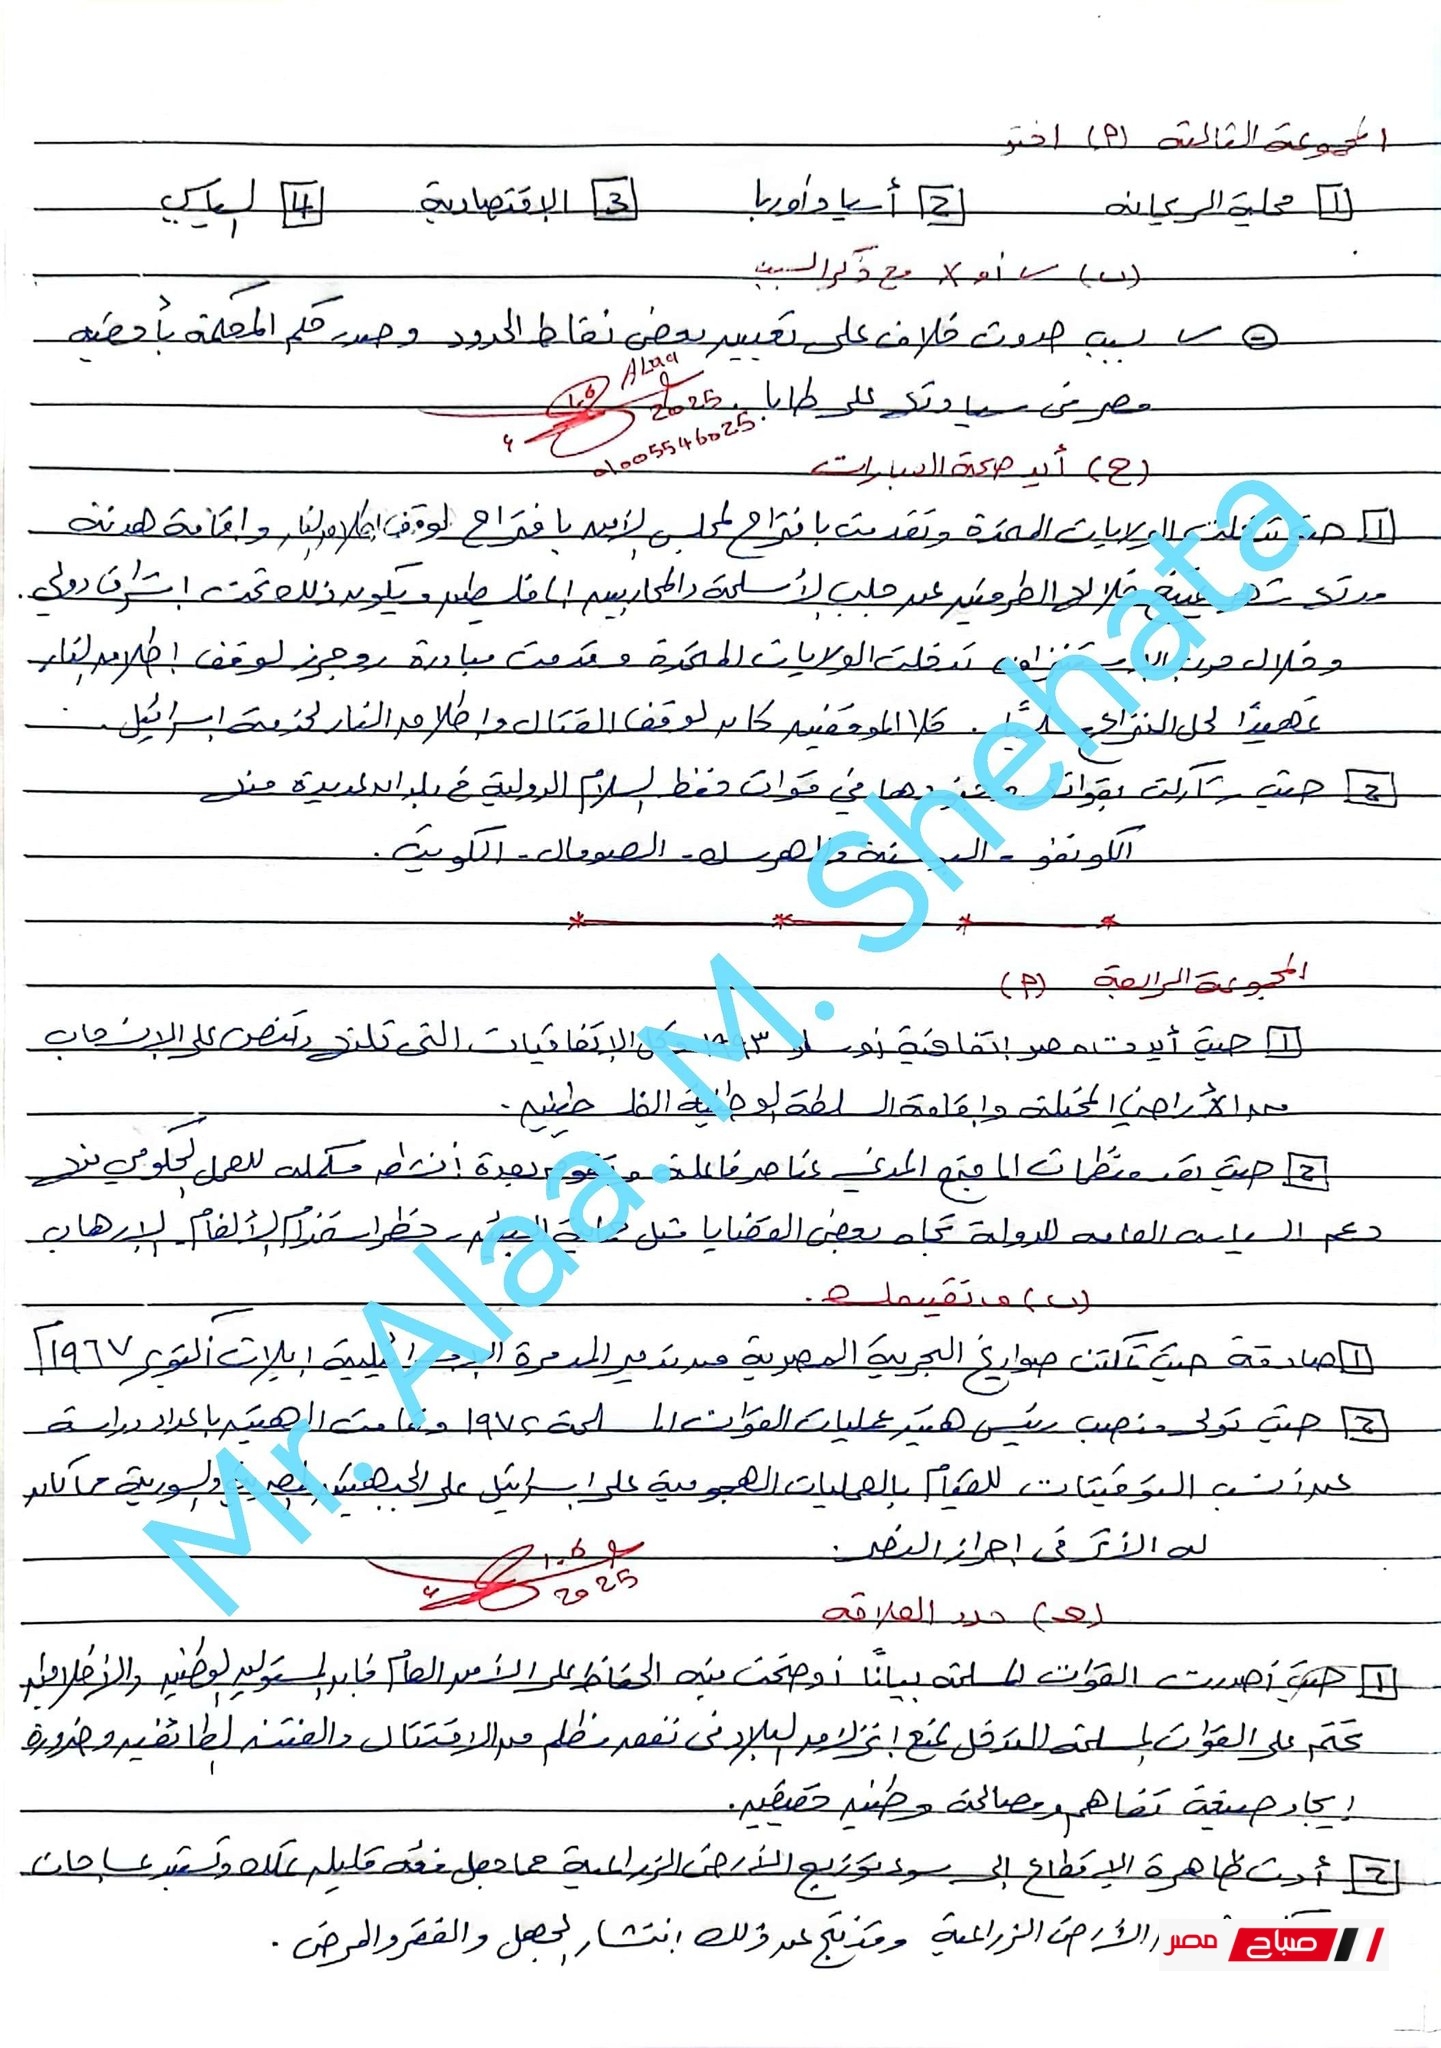 المجموعة الثالثة (أ) اختر
1 محلية الريحانه 2 أسيا وأوربا 3 الإقتصادية 4 السياسي
(ب) ✓ أو X مع ذكر السبب
✓ بسبب حدوث خلاف على تعيين بعض نقاط الحدود وصدر حكم المحكمة بأحقيه
مصر فى سيادتها على طابا.
Alaa
2025
01005546025
(ج) أيد صحة العبارات
1 حيث تدخلت الولايات المتحدة وتقدمت باقتراح لمجلس الأمن باقتراح لوقف اطلاق النار واقامة هدنة
مدتها شهر خلال الطرفين عن جلب الأسلحة والمحاربين الى فلسطين ويكون ذلك تحت اشراف دولي.
وخلال حرب الاستنزاف تدخلت الولايات المتحدة وقدمت مبادرة روجرز لوقف اطلاق النار
تمهيدًا لحل النزاع. كلا الموقفين كان لوقف القتال واطلاق النار لخدمة اسرائيل.
2 حيث شاركت بقواتها وجنودها في قوات حفظ السلام الدولية في بلدان عديدة منها
الكونغو - البوسنة والهرسك - الصومال - الكويت.
المجموعة الرابعة (أ)
1 حيث أيدت مصر إتفاقية أوسلو ١٩٩٣ وكل الإتفاقيات التى تلتها وتنص على الإنسحاب
من الأراضي المحتلة واقامة السلطة الوطنية الفلسطينيه.
2 حيث تعد منظمات المجتمع المدني عناصر فاعلة وتقوم بعدة أنشطه مكمله للعمل الحكومي منها
دعم السياسه العامه للدولة تجاه بعض القضايا مثل حماية البيئه - حظر استخدام الألغام - الإرهاب
(ب) ما تقييمك.
1 صادقة حيث تمكنت صواريخ البحرية المصرية من تدمير المدمرة الاسرائيلية ايلات أكتوبر ١٩٦٧م
2 حيث تولى منصب رئيس هيئة عمليات القوات المسلحة ١٩٧٢ وقامت الهيئه باعداد دراسة
عن أنسب التوقيتات للقيام بالعمليات الهجومية على اسرائيل على الجبهتين المصرية والسورية مما كان
له الأثر فى احراز النصر.
2025
(جـ) حدد العلاقه
1 حيث أصدرت القوات المسلحه بيانًا أوضحت فيه الحفاظ على الأمن العام فان المسئوليه الوطنيه والأخلاقيه
تحتم على القوات المسلحه التدخل لمنع انزلاق البلاد فى نفق مظلم من الاقتتال والفتنه الطائفيه وضرورة
إيجاد صيغة تفاهم ومصالحة وطنيه حقيقيه.
2 أدت ظاهرة الإقطاع إلى سوء توزيع الأرض الزراعية مما جعل فئه قليله تملك وتستبد بمساحات
الأرض الزراعية وقد نتج عن ذلك انتشار الجهل والفقر والمرض.
Mr. Alaa. M. Shehata
صباح مصر